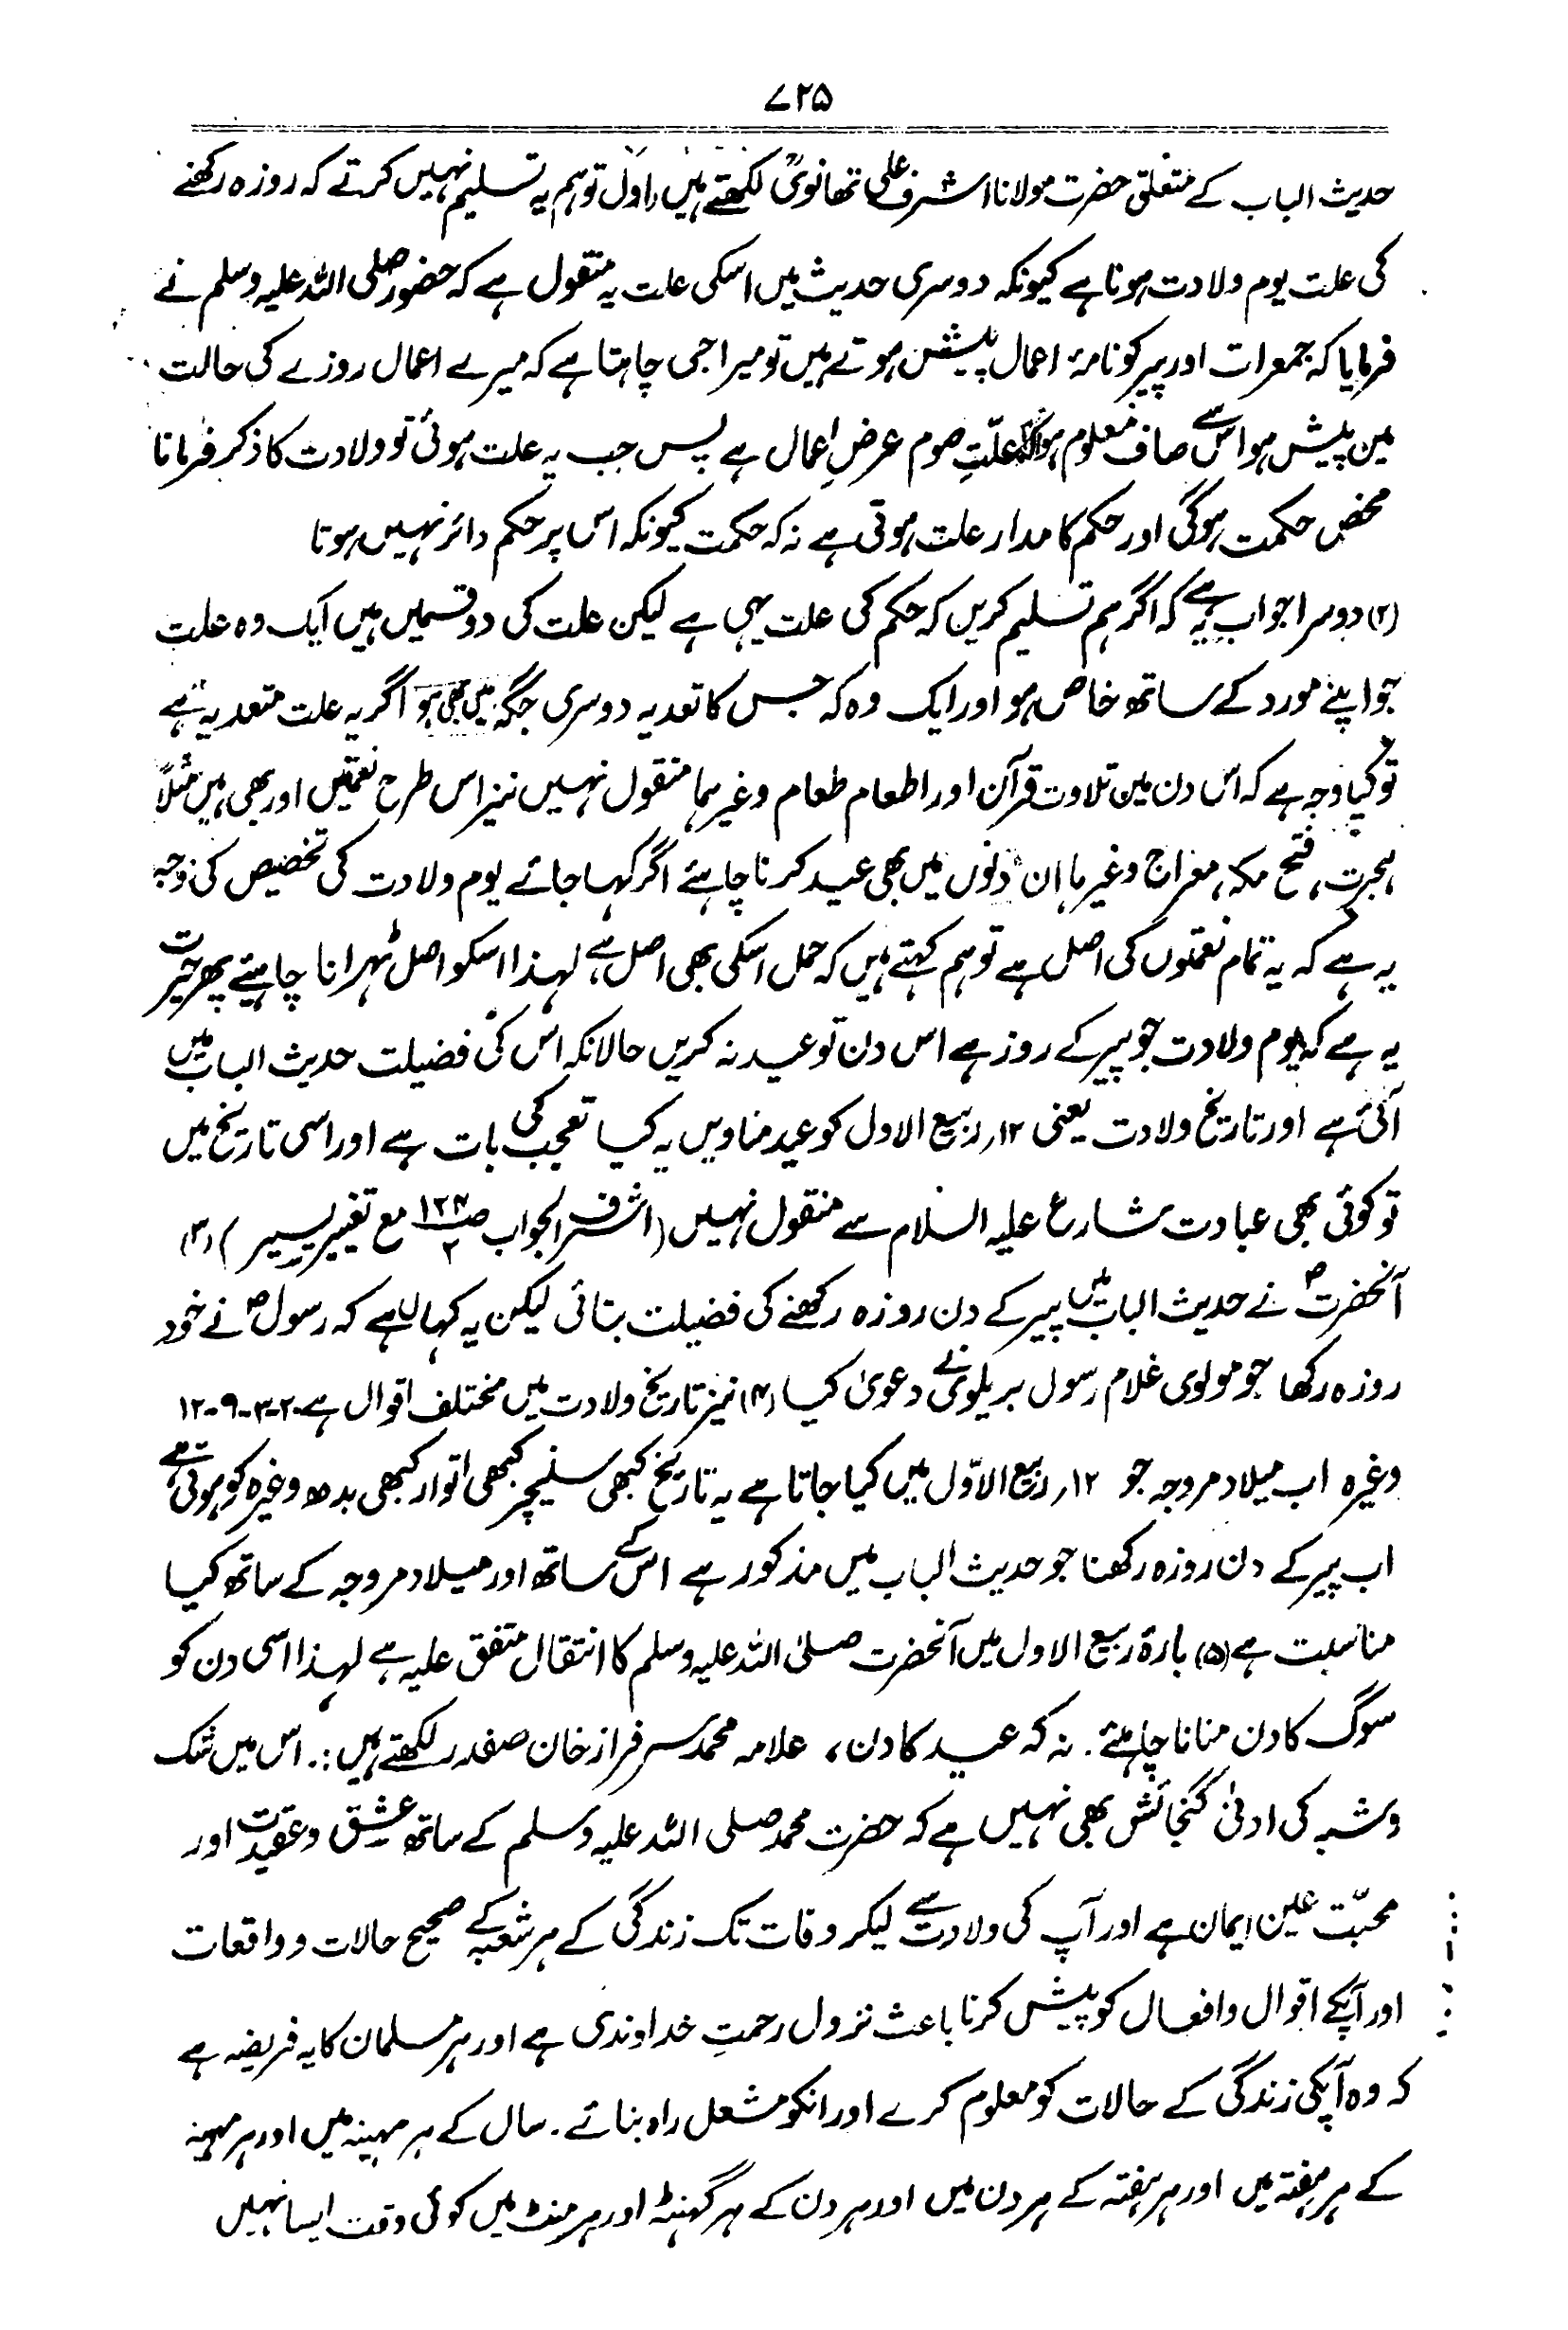 ۷۲۵
حدیث الباب کے متعلق حضرت مولانا اشرف علی تھانویؒ لکھتے ہیں، اول تو ہم یہ تسلیم نہیں کرتے کہ روزہ رکھنے
کی علت یوم ولادت ہونا ہے کیونکہ دوسری حدیث میں اسکی علت یہ منقول ہے کہ حضور صلی اللہ علیہ وسلم نے
فرمایا کہ جمعرات اور پیر کو نامۂ اعمال پیش ہوتے ہیں تو میرا جی چاہتا ہے کہ میرے اعمال روزے کی حالت
مین پیش ہو اس سے صاف معلوم ہوا کہ علّتِ صوم عرضِ اعمال ہے پس جب یہ علت ہوئی تو ولادت کا ذکر فرمانا
محض حکمت ہوگی اور حکم کا مدار علت ہوتی ہے نہ کہ حکمت کیونکہ اس پر حکم دائر نہیں ہوتا
(۲) دوسرا جواب یہ ہے کہ اگر ہم تسلیم کریں کہ حکم کی علت یہی ہے لیکن علت کی دو قسمیں ہیں ایک وہ علت
جو اپنے مورد کے ساتھ خاص ہو اور ایک وہ کہ جس کا تعدیہ دوسری جگہ میں بھی ہو اگر یہ علت متعدیہ ہے
تو کیا وجہ ہے کہ اس دن مین تلاوت قرآن اور اطعام طعام وغیرہما منقول نہیں نیز اس طرح نعمتیں اور بھی ہیں مثلاً
ہجرت، فتح مکہ، معراج وغیرہا ان دنوں میں بھی عید کرنا چاہئے اگر کہا جائے یوم ولادت کی تخصیص کی وجہ
یہ ہے کہ یہ تمام نعمتوں کی اصل ہے تو ہم کہتے ہیں کہ حمل اسکی بھی اصل ہے، لہذا اسکو اصل ٹہرانا چاہیئے پھر حیرت
یہ ہے کہ یوم ولادت جو پیر کے روز ہے اس دن تو عید نہ کریں حالانکہ اس کی فضیلت حدیث الباب میں
آئی ہے اور تاریخ ولادت یعنی ۱۲؍ ربیع الاول کو عید مناویں یہ کیا تعجب کی بات ہے اور اسی تاریخ میں
تو کوئی بھی عبادت شارع علیہ السلام سے منقول نہیں (اشرف الجواب ص۱۲۴/۲ مع تغییر یسیر) (۳)
آنحضرتؐ نے حدیث الباب میں پیر کے دن روزہ رکھنے کی فضیلت بتائی لیکن یہ کہاں ہے کہ رسولؐ نے خود
روزہ رکھا جو مولوی غلام رسول بریلوی نے دعویٰ کیا (۴) نیز تاریخ ولادت میں مختلف اقوال ہے ۲-۳-۹-۱۲
وغیرہ اب میلاد مروجہ جو ۱۲؍ ربیع الاوّل میں کیا جاتا ہے یہ تاریخ کبھی سنیچر کبھی اتوار کبھی بدھ وغیرہ کو ہوتی ہے
اب پیر کے دن روزہ رکھنا جو حدیث الباب میں مذکور ہے اس کے ساتھ اور میلاد مروجہ کے ساتھ کیا
مناسبت ہے (۵) بارۂ ربیع الاول میں آنحضرت صلی اللہ علیہ وسلم کا انتقال متفق علیہ ہے لہذا اسی دن کو
سوگ کا دن منانا چاہئے. نہ کہ عید کا دن، علامہ محمد سرفراز خان صفدر لکھتے ہیں :. اس میں شک
و شبہ کی ادنیٰ گنجائش بھی نہیں ہے کہ حضرت محمد صلی اللہ علیہ وسلم کے ساتھ عشق و عقیدت اور
محبّت عین ایمان ہے اور آپ کی ولادت سے لیکر وفات تک زندگی کے ہر شعبہ کے صحیح حالات و واقعات
اور آپکے اقوال و افعال کو پیش کرنا باعث نزول رحمتِ خداوندی ہے اور ہر مسلمان کا یہ فریضہ ہے
کہ وہ آپکی زندگی کے حالات کو معلوم کرے اور انکو مشعل راہ بنائے. سال کے ہر مہینہ میں اور ہر مہینہ
کے ہر ہفتہ میں اور ہر ہفتہ کے ہر دن میں اور ہر دن کے ہر گھنٹہ اور ہر منٹ میں کوئی وقت ایسا نہیں